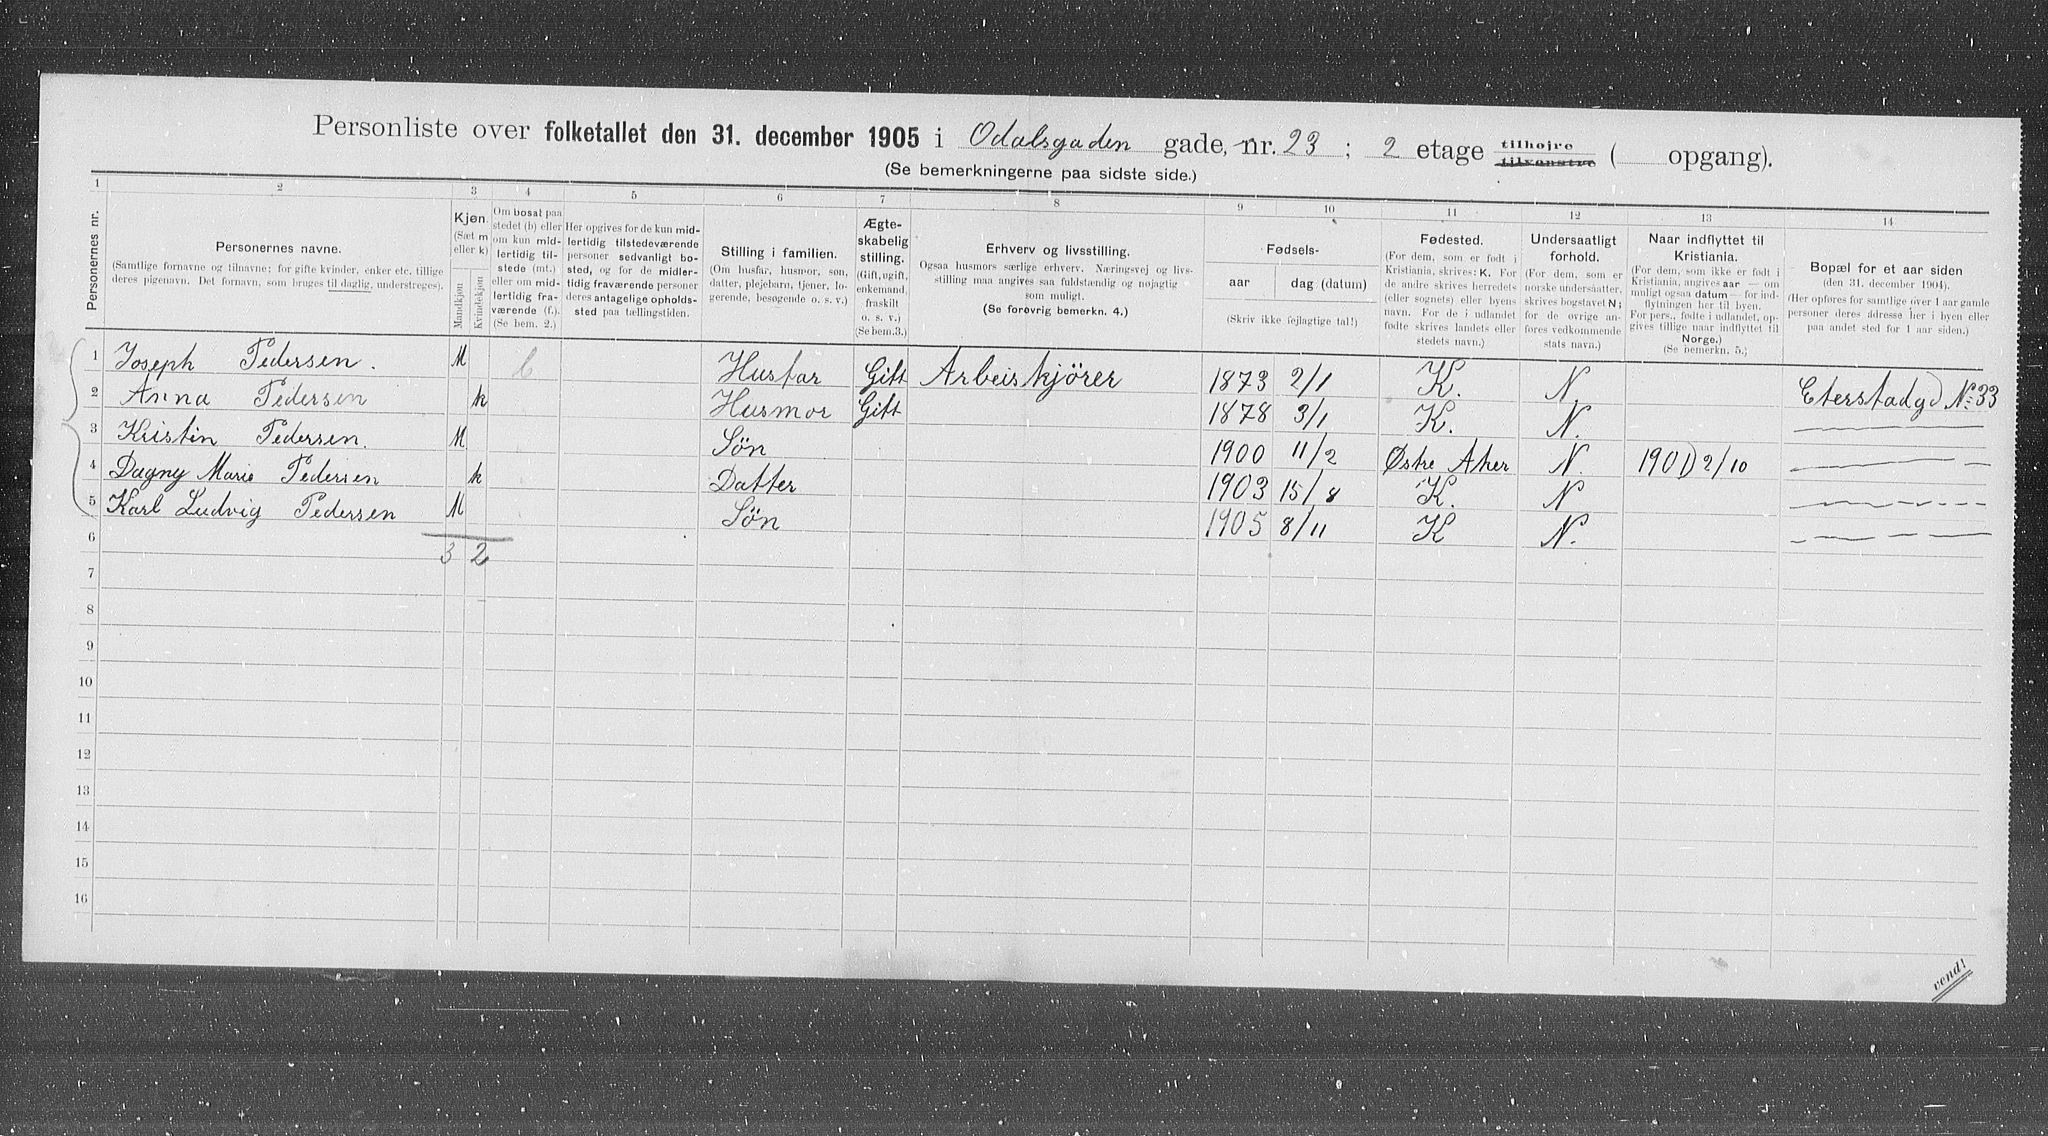 Personliste over folketallet den 31. december 1905 i Odalsgaden gade, nr. 23 ; 2 etage tilhøjre tilvenstre ( opgang).
(Se bemerkningerne paa sidste side.)
1 2 3 4 5 6 7 8 9 10 11 12 13 14
Personernes nr.
Personernes navne.
(Samtlige fornavne og tilnavne; for gifte kvinder, enker etc. tillige
deres pigenavn. Det fornavn, som bruges til daglig, understreges).
Kjøn.
(Sæt m
eller k)
Mandkjøn
Kvindekjøn
Om bosat paa
stedet (b) eller
om kun mid-
lertidig til-
stede (mt.)
eller om mid-
lertidig fra-
værende (f.).
(Se bem. 2.)
Her opgives for de kun mid-
lertidig tilstedeværende
personer sedvanligt bo-
sted, og for de midler-
tidig fraværende personer
deres antagelige opholds-
sted paa tællingstiden.
Stilling i familien.
(Om husfar, husmor, søn,
datter, plejebarn, tjener, lo-
gerende, besøgende o. s. v.)
Ægte-
skabelig
stilling.
(Gift, ugift,
enkemand,
fraskilt
o. s. v.)
(Se bem. 3.)
Erhverv og livsstilling.
Ogsaa husmors særlige erhverv. Næringsvej og livs-
stilling maa angives saa fuldstændig og nøjagtig
som muligt.
(Se forøvrig bemerkn. 4.)
Fødsels-
aar dag (datum)
(Skriv ikke fejlagtige tal!)
Fødested.
(For dem, som er født i
Kristiania, skrives: K. For
de andre skrives herredets
(eller sognets) eller byens
navn. For de i udlandet
fødte skrives landets eller
stedets navn.)
Undersaatligt
forhold.
(For dem, som er
norske undersaatter,
skrives bogstavet N;
for de øvrige an-
føres vedkommende
stats navn.)
Naar indflyttet til
Kristiania.
(For dem, som ikke er født i
Kristiania, angives aar — om
muligt ogsaa datum — for ind-
flytningen her til byen.
For pers., fødte i udlandet, op-
gives tillige naar indflyttet til
Norge.)
(Se bemerkn. 5.)
Bopæl for et aar siden
(den 31. december 1904).
(Her opføres for samtlige over 1 aar gamle
personer deres adresse her i byen eller
paa andet sted for 1 aar siden.)
1 Joseph Pedersen. M b Husfar Gift Arbeiskjörer 1873 2/1 K. N. Eterstadgd No 33
2 Anna Pedersen k Husmor Gift 1878 3/1 K. N. —
3 Kristin Pedersen. M Søn 1900 11/2 Østre Aker N. 1901) 2/10 — —
4 Dagny Marie Pedersen k Datter 1903 15/8 K. N — — —
5 Karl Ludvig Pedersen M Søn 1905 8/11 K N. — — —
6 3 2
7
8
9
10
11
12
13
14
15
16
vend!